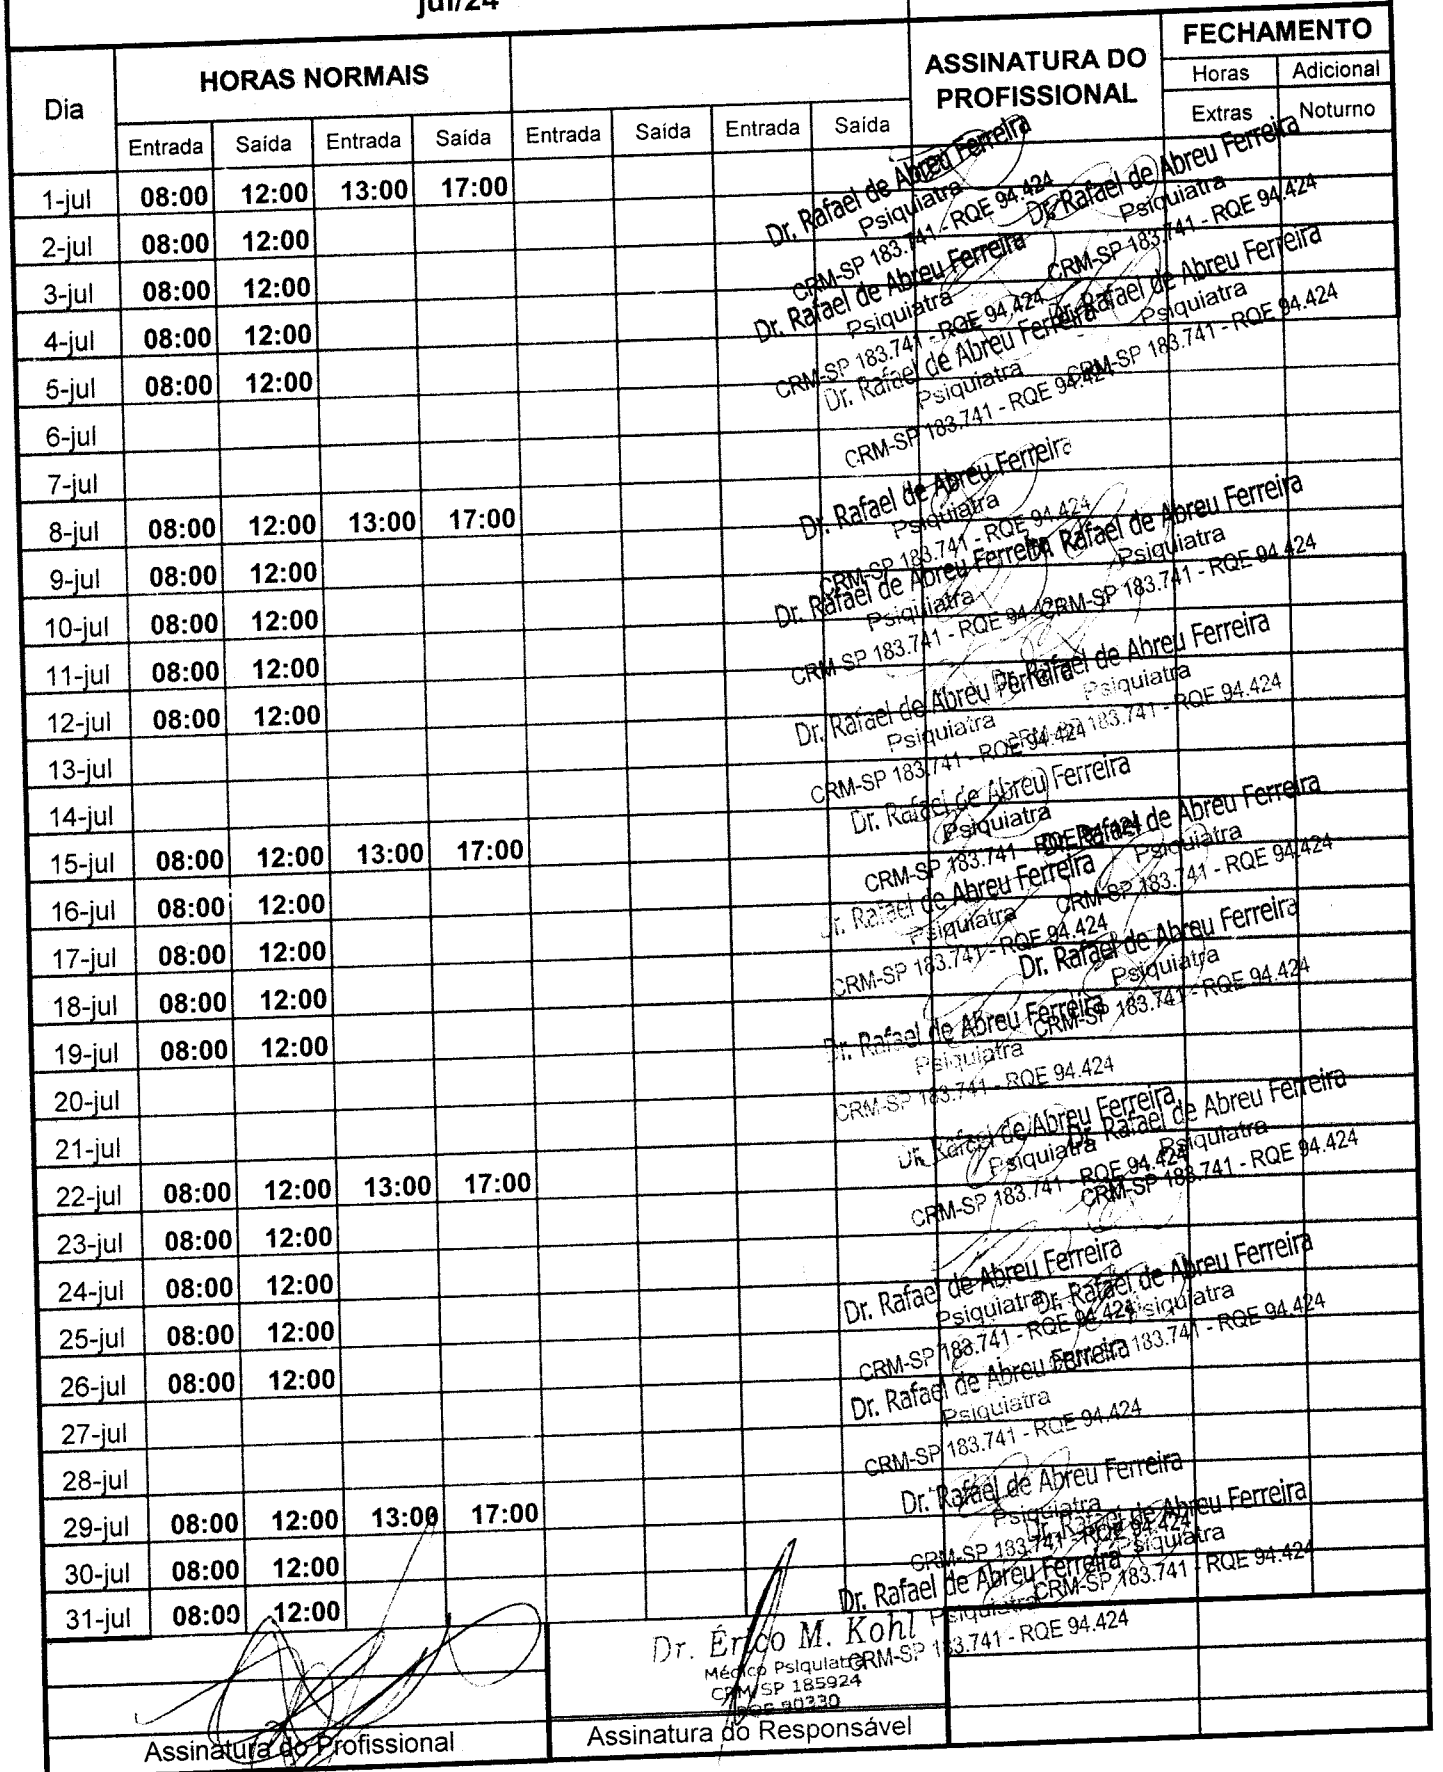 jul/24
FECHAMENTO
HORAS NORMAIS
ASSINATURA DO
PROFISSIONAL
Horas Adicional
Dia
Extras Noturno
Entrada Saída Entrada Saída Entrada Saída Entrada Saída
1-jul 08:00 12:00 13:00 17:00
Dr. Rafael de Abreu Ferreira
Psiquiatra
CRM-SP 183.741 - RQE 94.424
Dr. Rafael de Abreu Ferreira
Psiquiatra
CRM-SP 183.741 - RQE 94.424
2-jul 08:00 12:00
3-jul 08:00 12:00
Dr. Rafael de Abreu Ferreira
Psiquiatra
CRM-SP 183.741 - RQE 94.424
Dr. Rafael de Abreu Ferreira
Psiquiatra
CRM-SP 183.741 - RQE 94.424
4-jul 08:00 12:00
5-jul 08:00 12:00
Dr. Rafael de Abreu Ferreira
Psiquiatra
CRM-SP 183.741 - RQE 94.424
6-jul
7-jul
8-jul 08:00 12:00 13:00 17:00
Dr. Rafael de Abreu Ferreira
Psiquiatra
CRM-SP 183.741 - RQE 94.424
Dr. Rafael de Abreu Ferreira
Psiquiatra
CRM-SP 183.741 - RQE 94.424
9-jul 08:00 12:00
10-jul 08:00 12:00
Dr. Rafael de Abreu Ferreira
Psiquiatra
CRM-SP 183.741 - RQE 94.424
11-jul 08:00 12:00
Dr. Rafael de Abreu Ferreira
Psiquiatra
CRM-SP 183.741 - RQE 94.424
12-jul 08:00 12:00
Dr. Rafael de Abreu Ferreira
Psiquiatra
CRM-SP 183.741 - RQE 94.424
13-jul
14-jul
15-jul 08:00 12:00 13:00 17:00
Dr. Rafael de Abreu Ferreira
Psiquiatra
CRM-SP 183.741 - RQE 94.424
Dr. Rafael de Abreu Ferreira
Psiquiatra
CRM-SP 183.741 - RQE 94.424
16-jul 08:00 12:00
17-jul 08:00 12:00
Dr. Rafael de Abreu Ferreira
Psiquiatra
CRM-SP 183.741 - RQE 94.424
18-jul 08:00 12:00
Dr. Rafael de Abreu Ferreira
Psiquiatra
CRM-SP 183.741 - RQE 94.424
19-jul 08:00 12:00
Dr. Rafael de Abreu Ferreira
Psiquiatra
CRM-SP 183.741 - RQE 94.424
20-jul
21-jul
22-jul 08:00 12:00 13:00 17:00
Dr. Rafael de Abreu Ferreira
Psiquiatra
CRM-SP 183.741 - RQE 94.424
Dr. Rafael de Abreu Ferreira
Psiquiatra
CRM-SP 183.741 - RQE 94.424
23-jul 08:00 12:00
24-jul 08:00 12:00
Dr. Rafael de Abreu Ferreira
Psiquiatra
CRM-SP 183.741 - RQE 94.424
25-jul 08:00 12:00
Dr. Rafael de Abreu Ferreira
Psiquiatra
183.741 - RQE 94.424
26-jul 08:00 12:00
Dr. Rafael de Abreu Ferreira
Psiquiatra
CRM-SP 183.741 - RQE 94.424
27-jul
28-jul
29-jul 08:00 12:00 13:00 17:00
Dr. Rafael de Abreu Ferreira
Psiquiatra
CRM-SP 183.741 - RQE 94.424
Dr. Rafael de Abreu Ferreira
Psiquiatra
CRM-SP 183.741 - RQE 94.424
30-jul 08:00 12:00
31-jul 08:00 12:00
Dr. Rafael de Abreu Ferreira
Psiquiatra
CRM-SP 183.741 - RQE 94.424
Dr. Érico M. Kohl
Médico Psiquiatra
CRM/SP 185924
RQE 90330
Assinatura do Profissional
Assinatura do Responsável